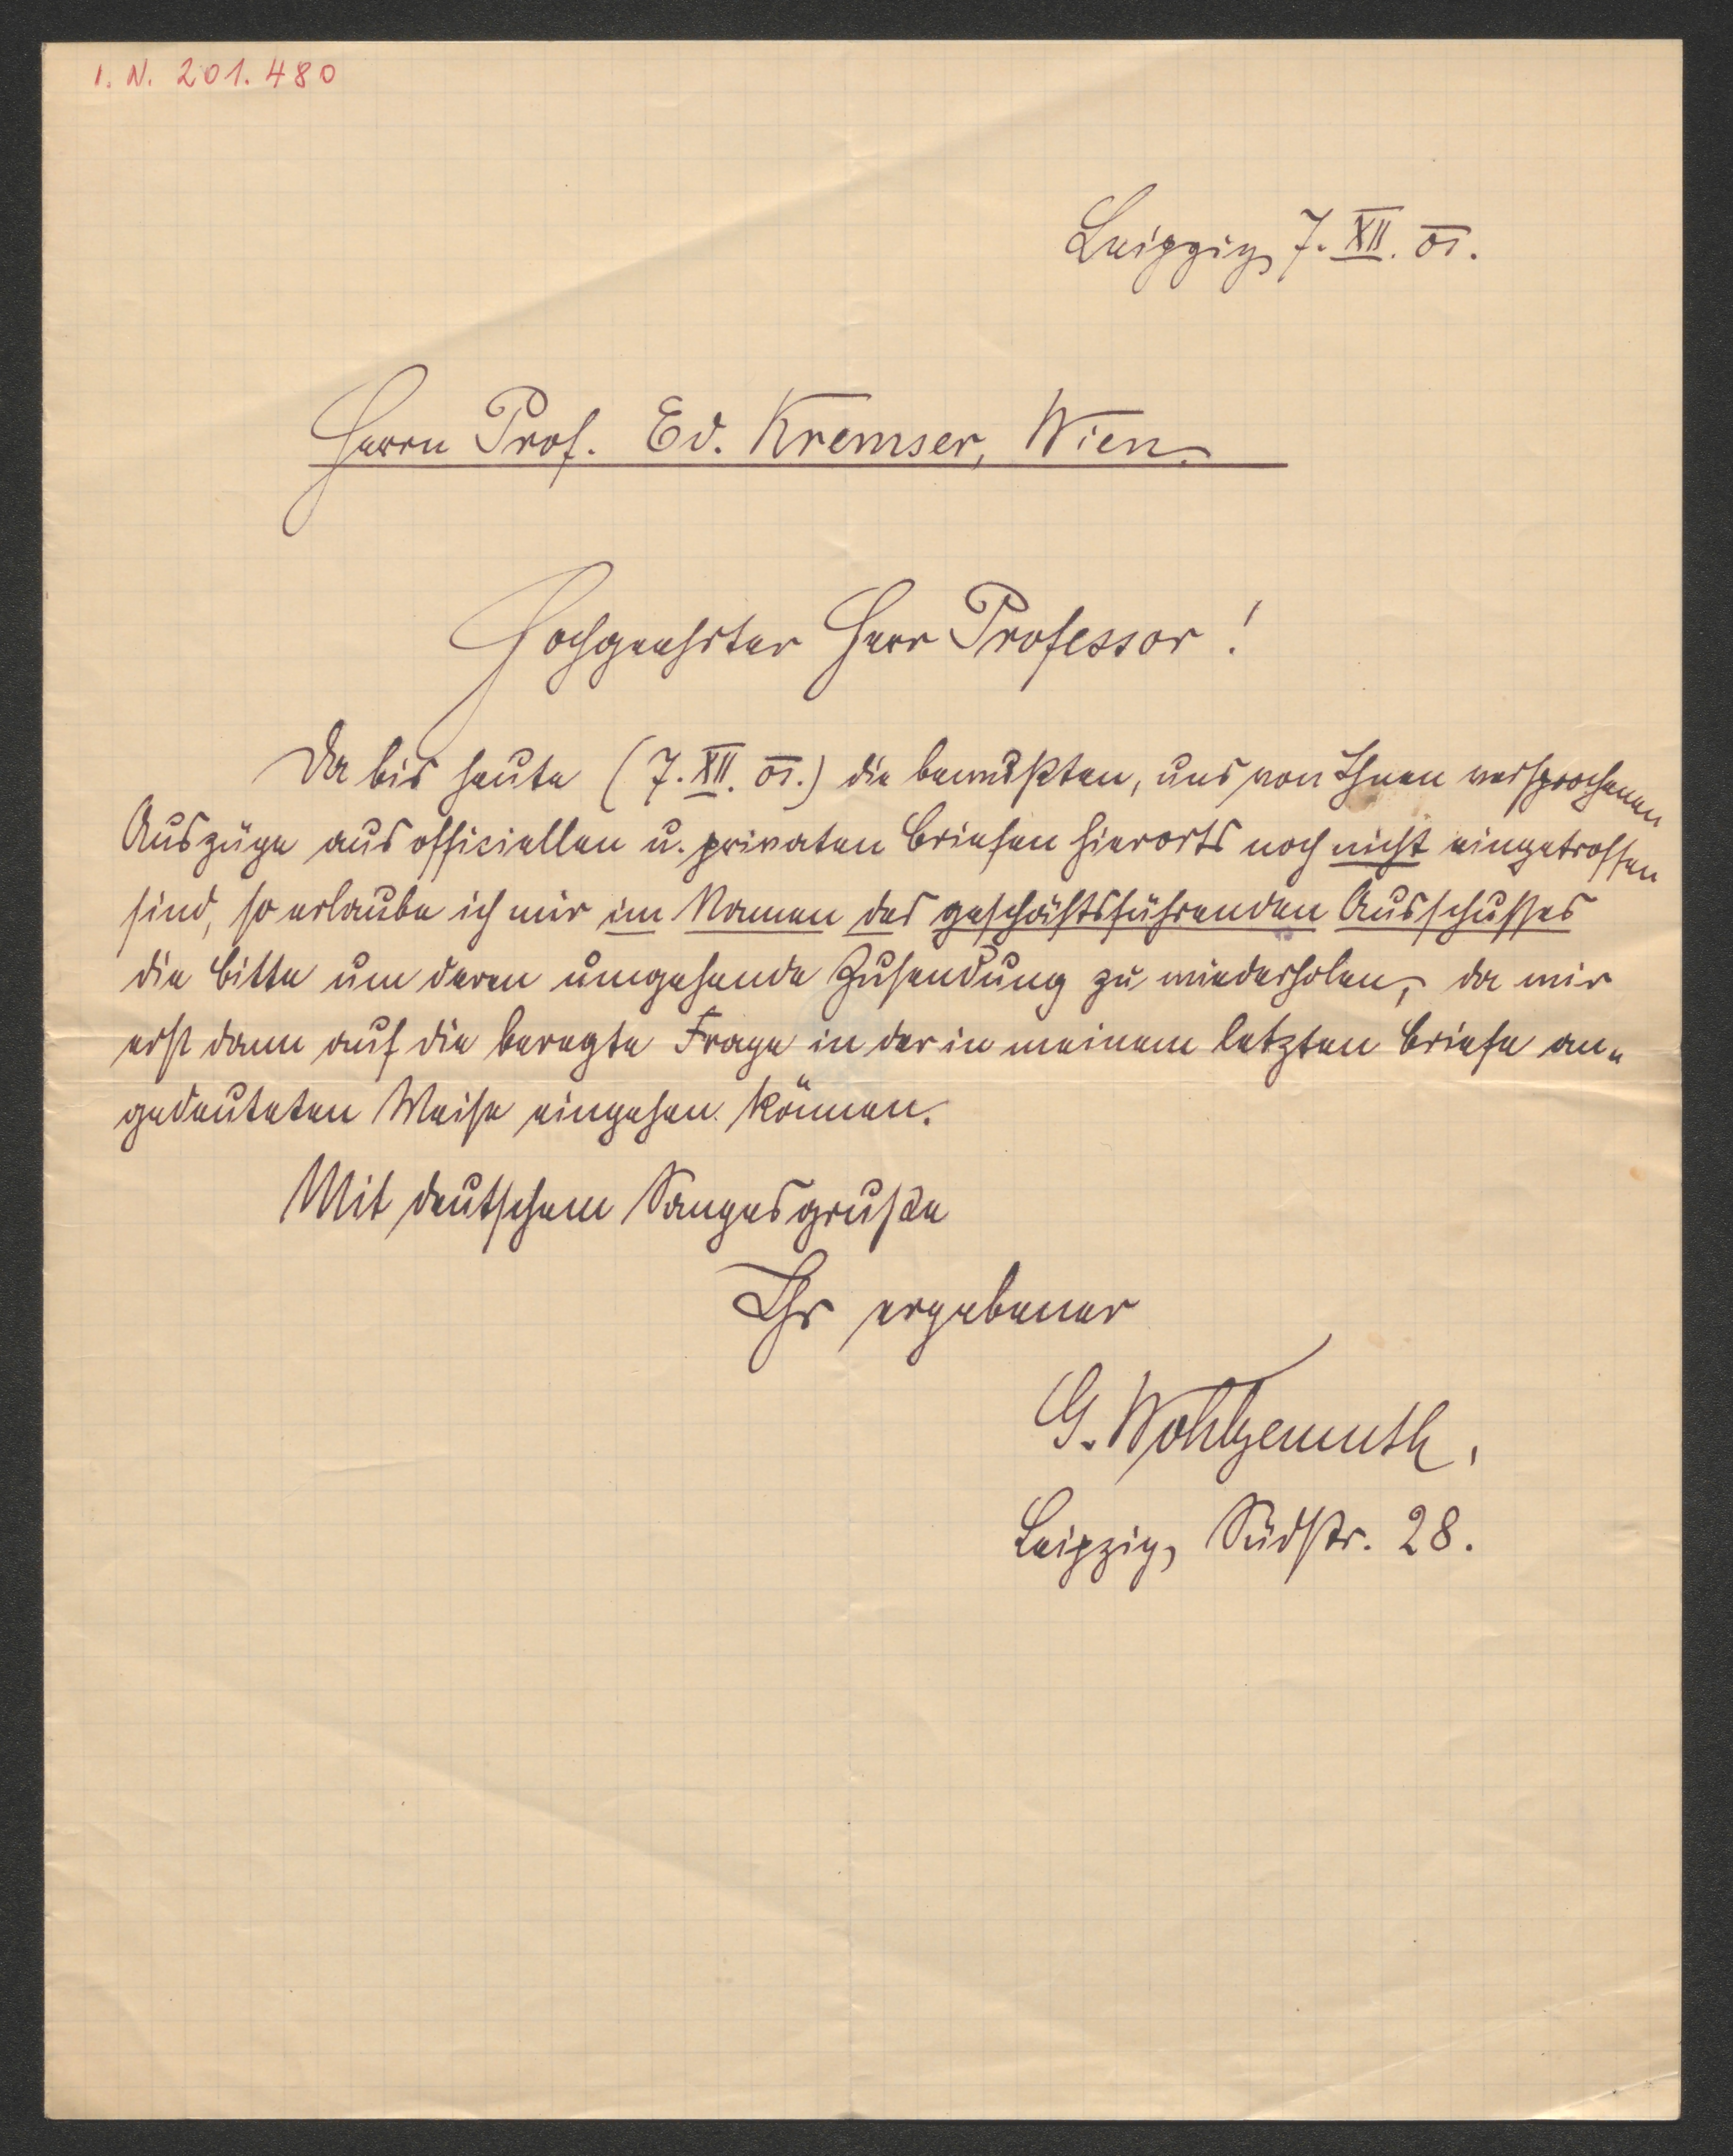 I. N. 201.480
Leipzig, 7. XII. 01.
Herrn Prof. Ed. Kremser, Wien.
Hochgeehrter Herr Professor!
Da bis heute (7. XII. 01.) die bewußten, uns von Ihnen versprochenen
Auszüge aus officiellen u. privaten Briefen hierorts noch nicht eingetroffen
sind, so erlaube ich mir im Namen des geschäftsführenden Ausschusses
die Bitte um deren umgehende Zusendung zu wiederholen, da wir
erst dann auf die beregte Frage in der in meinem letzten Briefe an-
gedeuteten Weise eingehen können.
Mit deutschem Sangesgruße
Ihr ergebener
G. Wohlgemuth,
Leipzig, Südstr. 28.